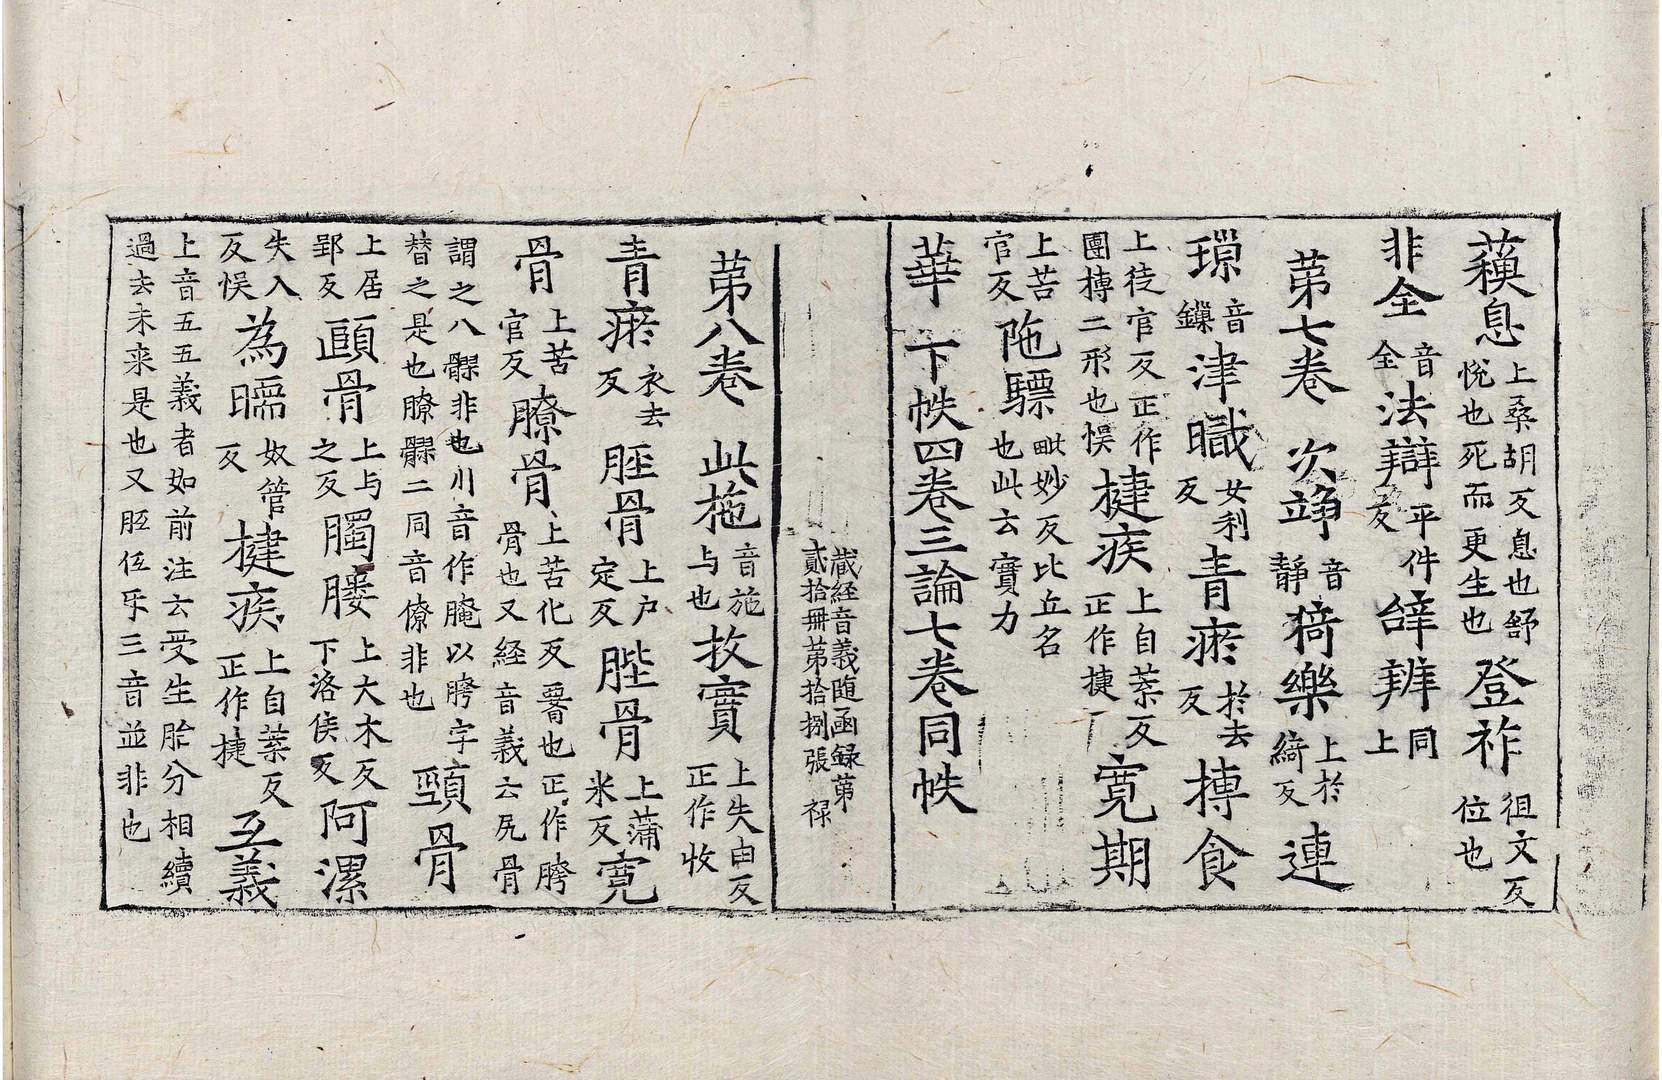 蘓息上桑胡反息也舒悅也死而更生也登祚徂文反位也
非全音全法辯平件反辝辨同上
苐七卷 次竫音靜猗樂上於綺反連
環音鐶津膱女利反青瘀於去反摶食
上徒官反正作團摶二形也悮揵疾上自葉反正作捷寬期
上苦官反陁驃毗妙反比丘名也此云實力
華 下帙四卷三論七卷同帙
蔵経音義随函録苐貳拾冊苐拾捌張 禄
苐八卷 此柂音施与也扷實上失由反正作收
青瘀衣去反胵骨上户定反䏶骨上蒲米反寛
骨上苦官反膫骨上苦化反䯊也正作胯骨也又経音義云尻骨
謂之八髎非也川音作腌以胯字替之是也膫髎二同音僚非也頸骨
上居郢反頥骨上与之反髑䏔上大木反下洛侯反阿漯
失入反悮為㬮奴管反揵疾上自葉反正作捷五義
上音五五義者如前注云受生胎分相續過去未来是也又胵伍乐三音並非也